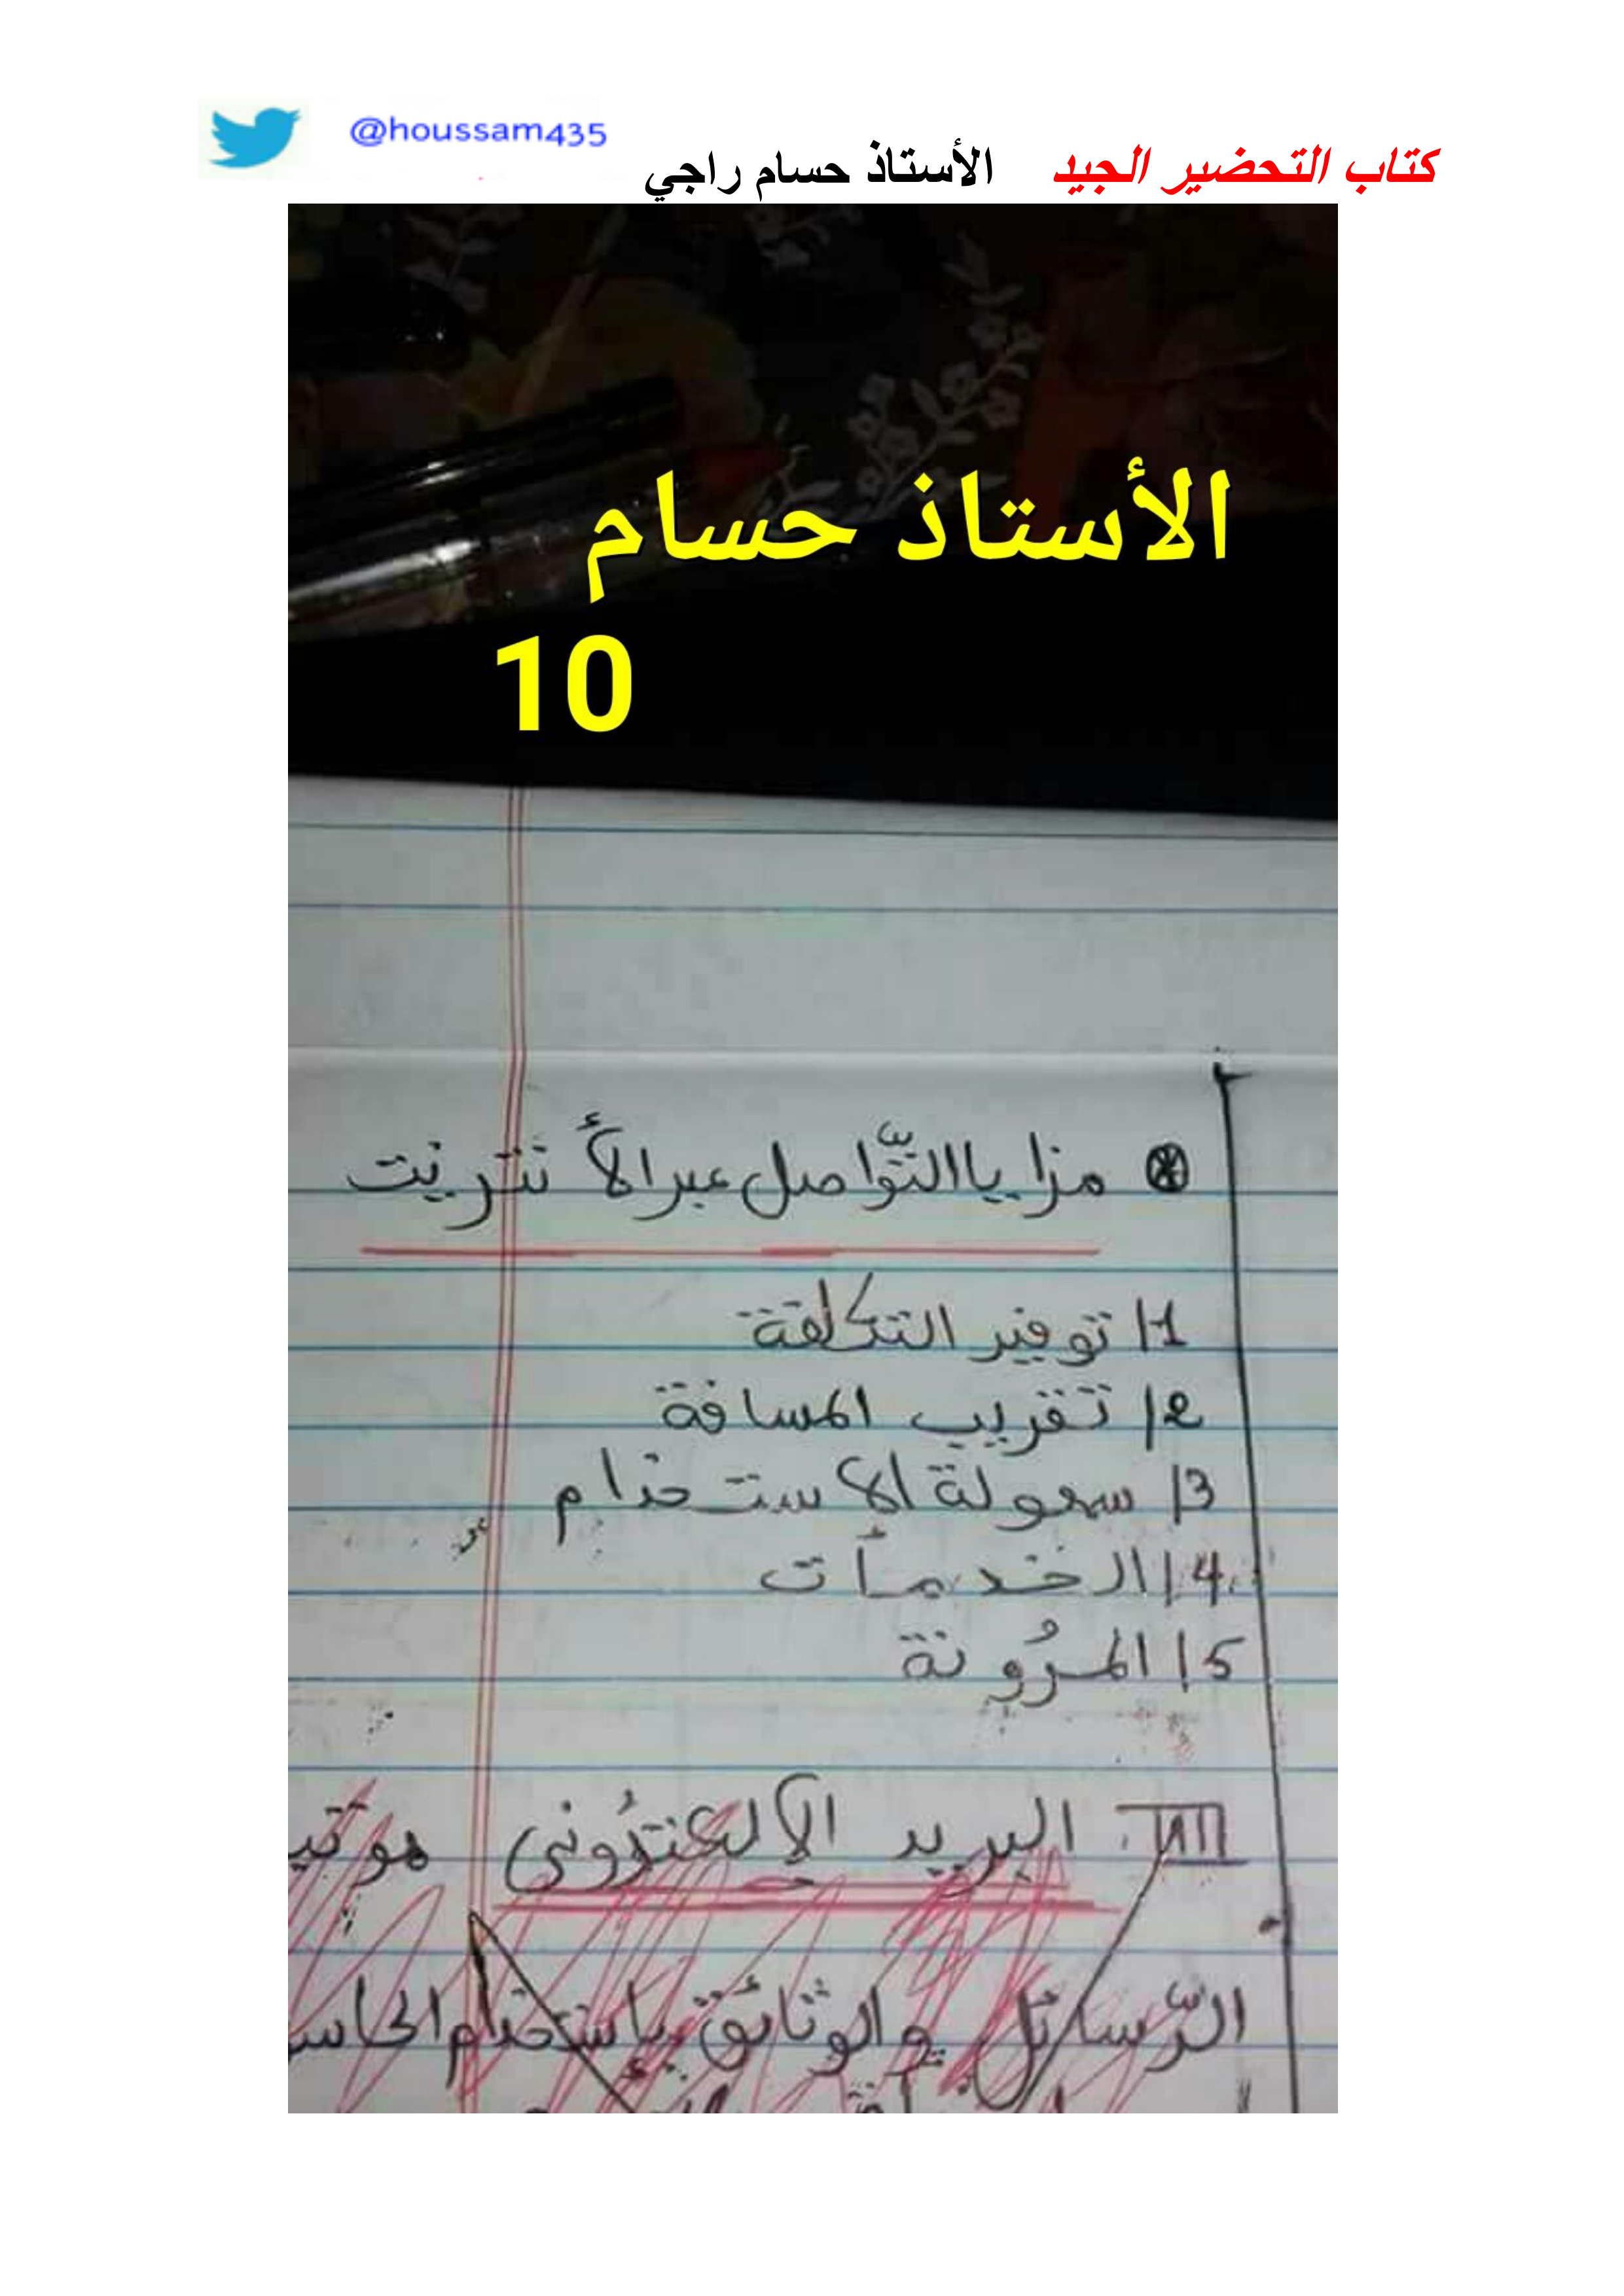 @houssam435
كتاب التحضير الجيد الأستاذ حسام راجي
الأستاذ حسام
10
مزايا التّواصل عبر الأنترنت
1/ توفير التكلفة
2/ تقريب المسافة
3/ سهولة الاستخدام
4/ الخدمات
5/ المرُونة
III. البريد الالكترُوني هو
الرّسائل والوثائق بإستخدام